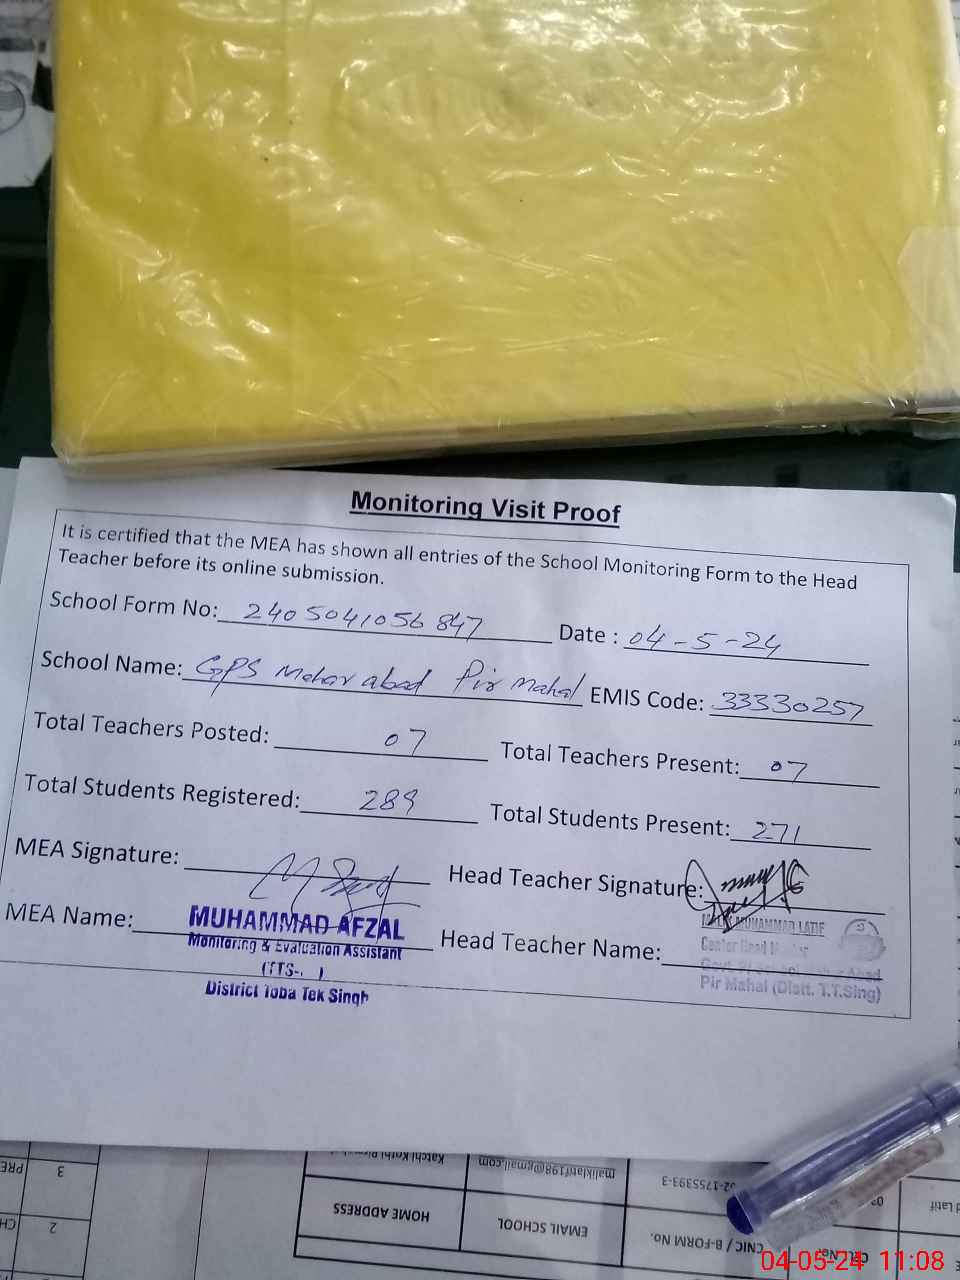 Monitoring Visit Proof
It is certified that the MEA has shown all entries of the School Monitoring Form to the Head
Teacher before its online submission.
School Form No: 2405041056847 Date : 04-5-24
School Name: GPS Mehar abad Pir Mahal EMIS Code: 33330257
Total Teachers Posted: 07 Total Teachers Present: 07
Total Students Registered: 289 Total Students Present: 271
MEA Signature: Head Teacher Signature:
MEA Name: MUHAMMAD AFZAL Head Teacher Name: MALIK MUHAMMAD LATIF
Monitoring & Evaluation Assistant
(TTS-. )
District Toba Tek Singh
Center Head
Pir Mahal (Distt. T.T.Sing)
maliklatif198@gmail.com
HOME ADDRESS
EMAIL SCHOOL
CNIC / B-FORM No.
3
2
04-05-24 11:08